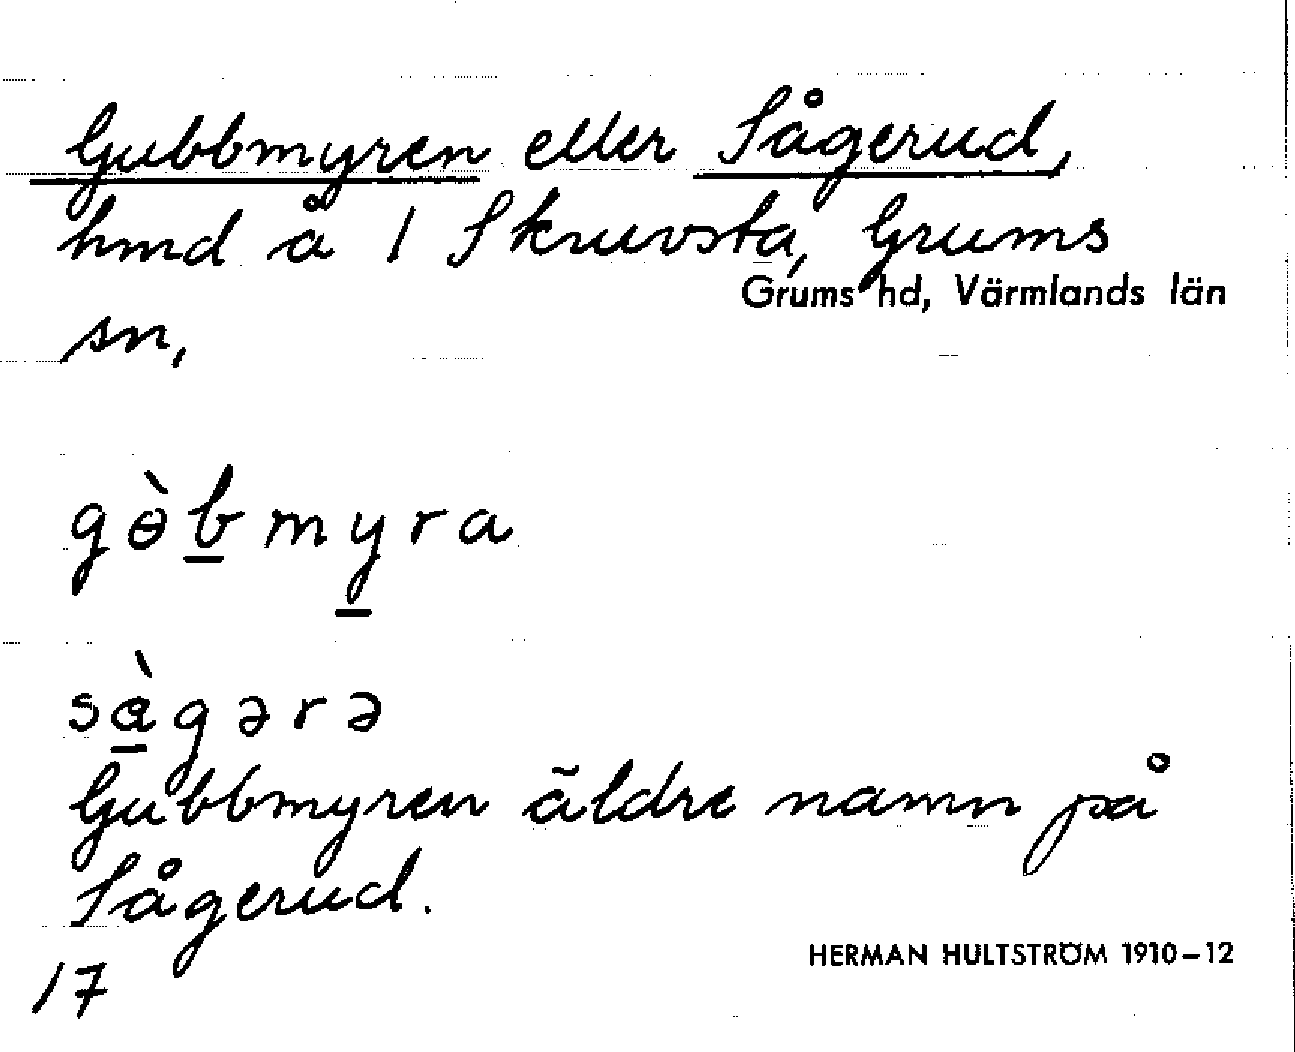 Gubbmyren eller Sågerud,
hmd å 1 Skruvsta, Grums
Grums hd, Värmlands län
sn,
gɵ̀bmyra
sàgərə
Gubbmyren äldre namn på
Sågerud.
17
HERMAN HULTSTRÖM 1910–12